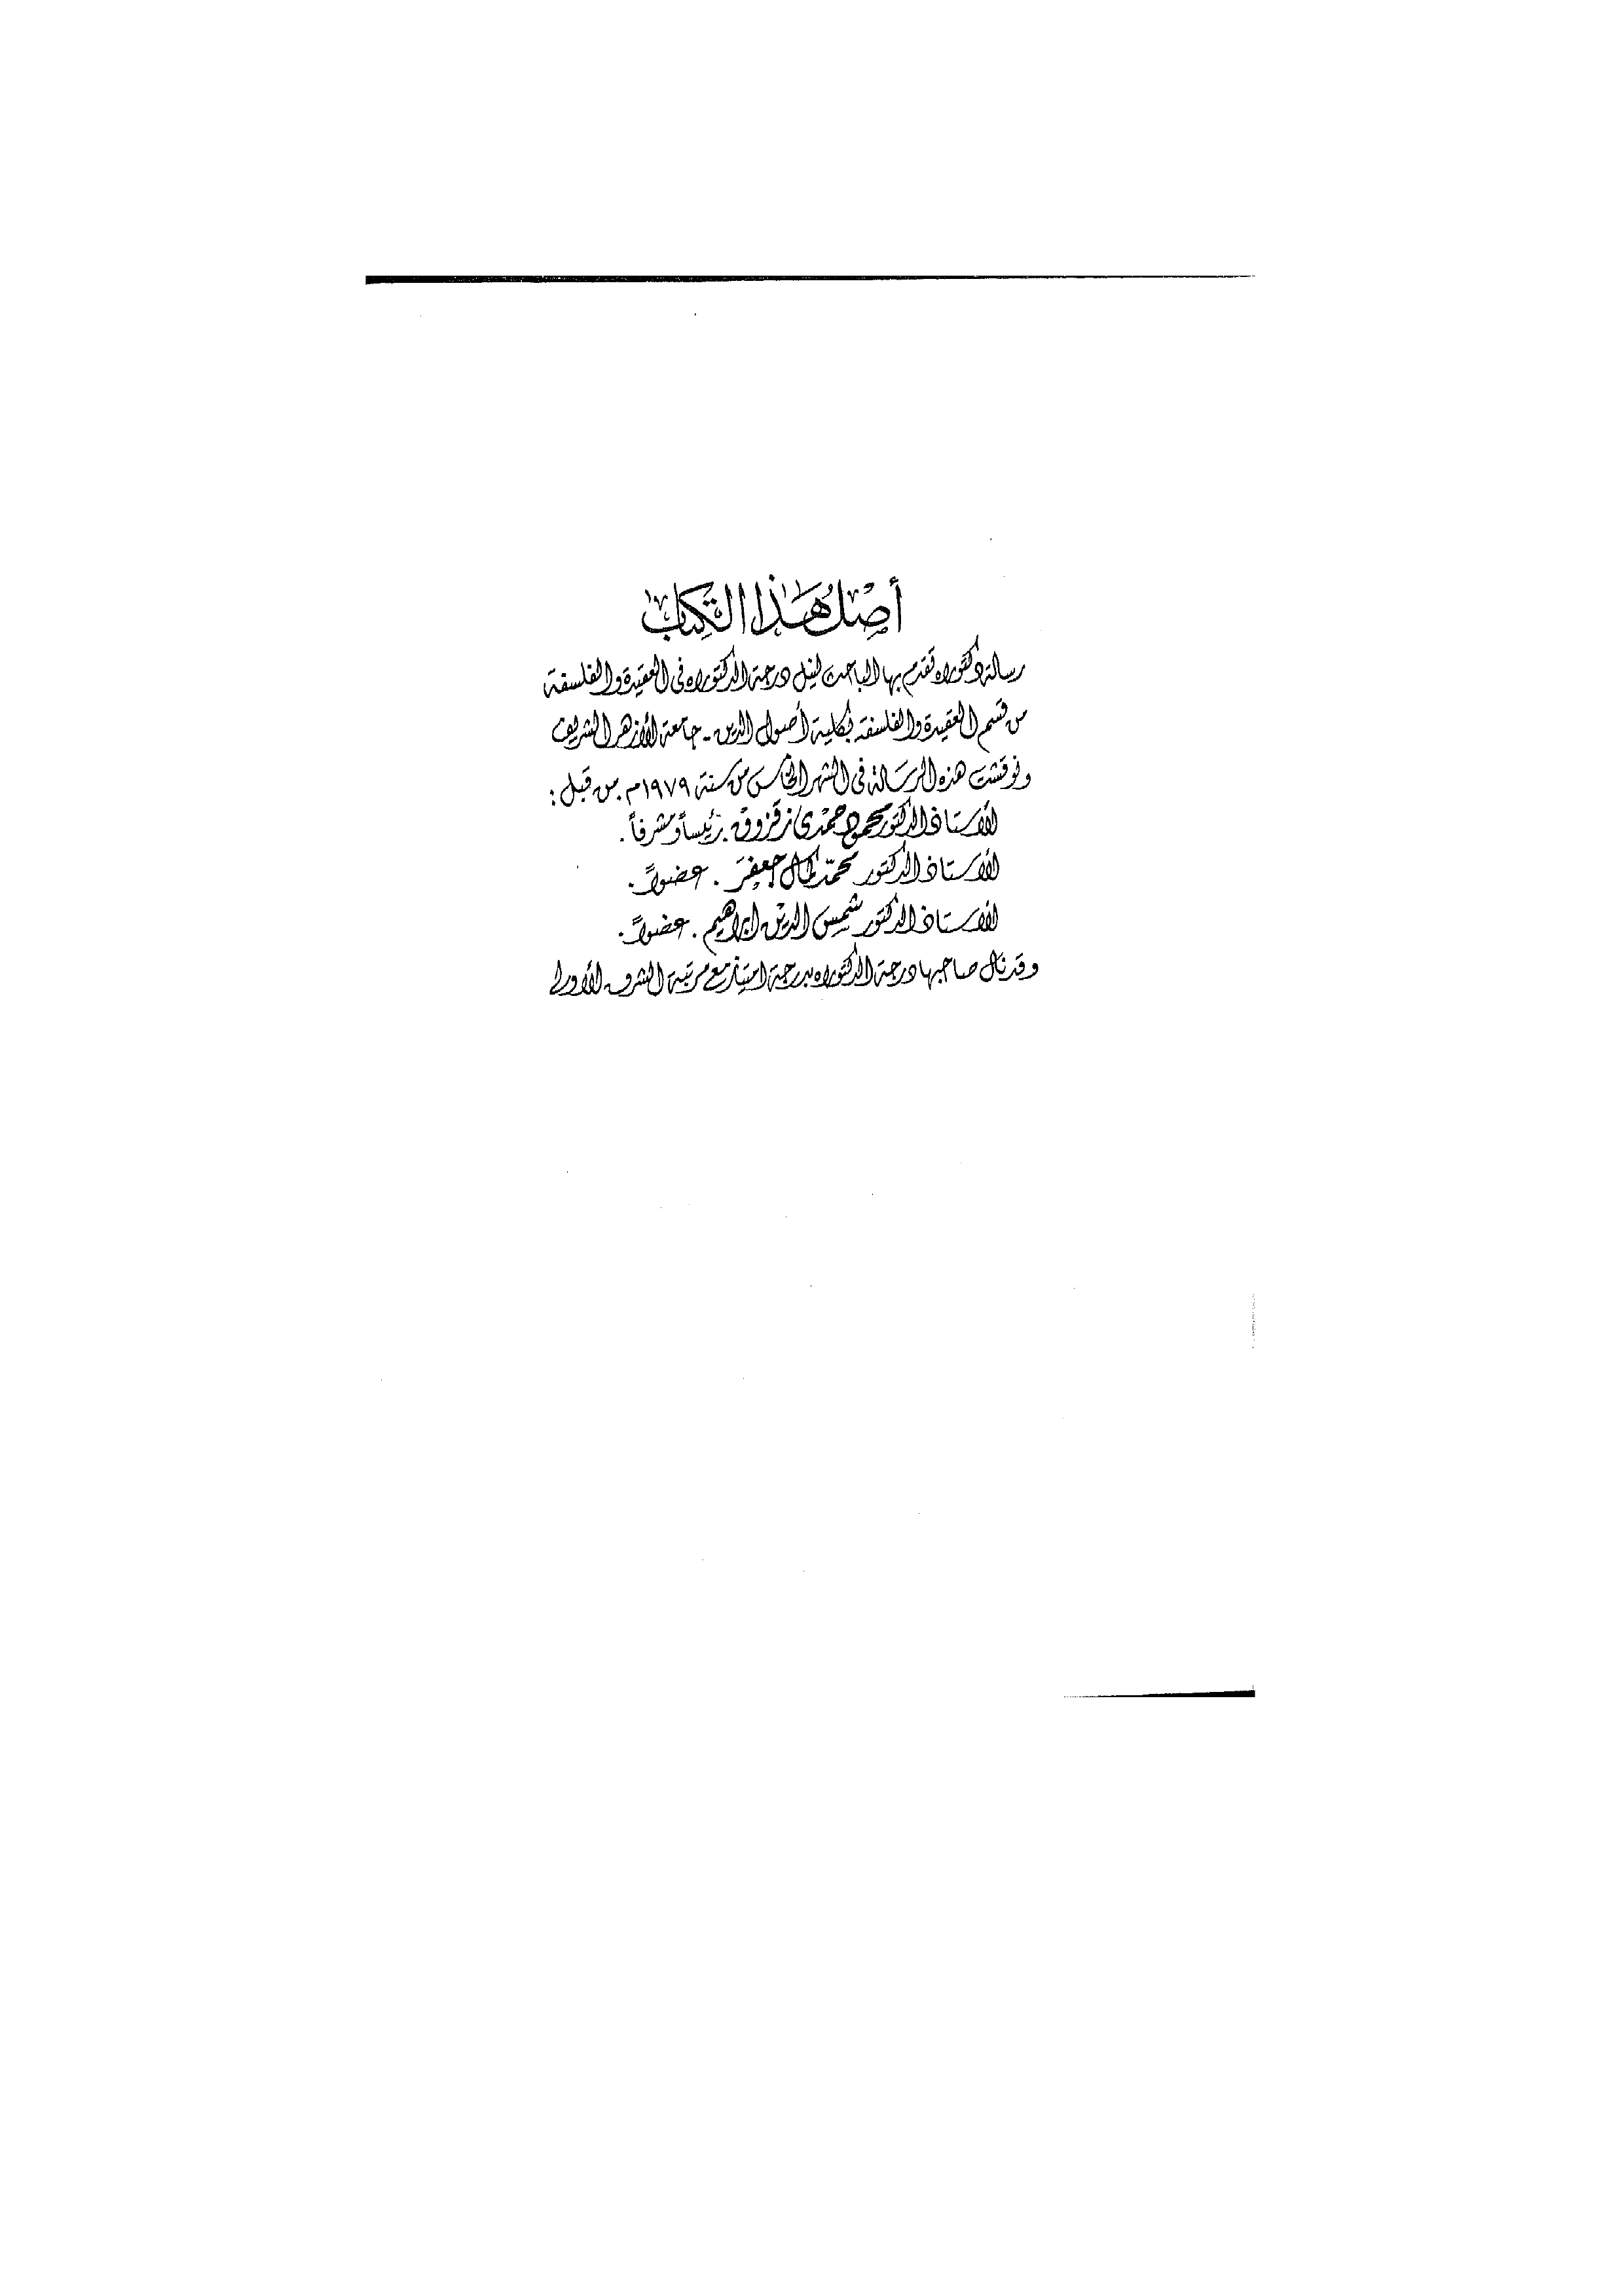 أصل هذا الكتاب
رسالة دكتوراه تقدم بها الباحث لنيل درجة الدكتوراه في العقيدة والفلسفة
من قسم العقيدة والفلسفة بكلية أصول الدين - جامعة الأزهر الشريف
ونوقشت هذه الرسالة في الشهر الخامس من سنة ١٩٧٩م من قبل :
الأستاذ الدكتور محمود حمدي زقزوق . رئيساً ومشرفاً .
الأستاذ الدكتور محمد كمال جعفر . عضواً .
الأستاذ الدكتور شمس الدين ابراهيم . عضواً .
وقد نال صاحبها درجة الدكتوراه بدرجة امتياز مع مرتبة الشرف الأولى